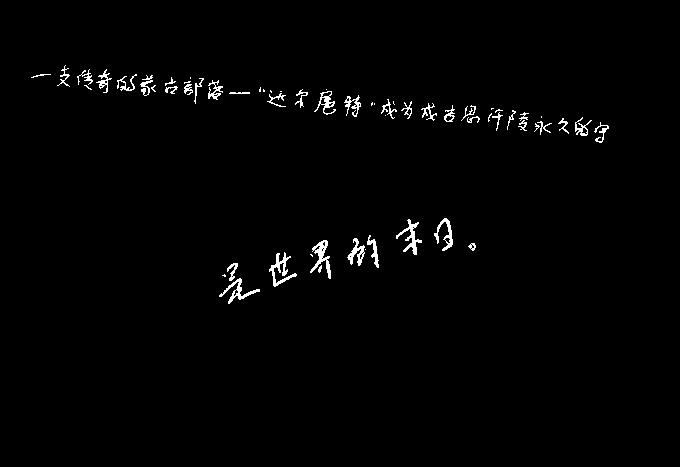 一支传奇的蒙古部落—“达尔扈特”成为成吉思汗陵永久的守
是世界的末日。